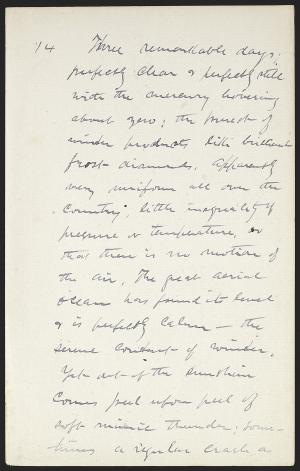 14 Three remarkable days;
perfectly clear & perfectly still
with the mercury hovering
about zero; the purest of
winter products like brilliant
frost diamonds. Apparently
very uniform all over the
country; little inequality of
pressure or temperature, so
that there is no motion of
the air, The great aerial
ocean has found its level
& is perfectly calm — the
serene content of winter.
Yet out of the sunshine
comes peal upon peal of
soft mimic thunder; some-
times a regular crash as